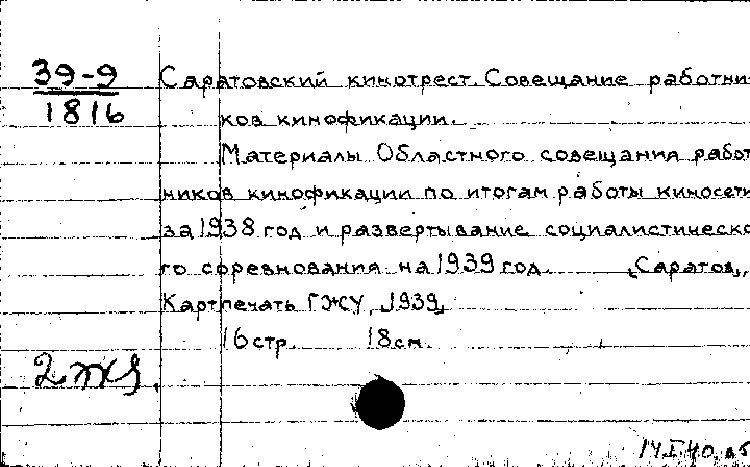 39-9
1816
Саратовский кинотрест. Совещание работни-
ков кинофикации.
Материалы Областного совещания работ-
ников кинофикации по итогам работы киносети
за 1938 год и развертывание социалистическо-
го соревнования на 1939 год. [Саратов,
Картпечать ГЖУ, 1939]
16 стр. 18 см.
2 экз.
14 I 40